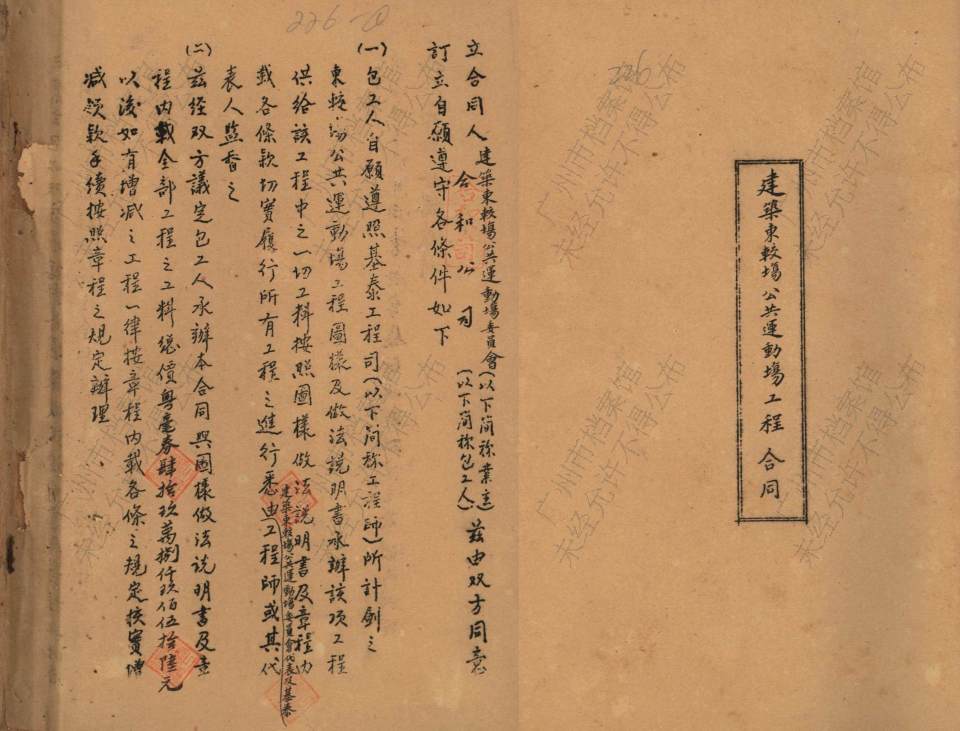 建築東較塲公共運動塲工程 合同
立合同人 建築東較塲公共運動塲委員會(以下简称業主)
合和公司 (以下简称包工人) 茲由双方同意
訂立自願遵守各條件如下
(一) 包工人自願遵照基泰工程司(以下简称工程師)所計劃之
東較塲公共運動塲工程圖樣及做法説明書承辦該项工程
供给該工程中之一切工料按照圖樣做法説明書及章程内
載各條款切實履行所有工程之進行悉由工程師或其代
建築東較塲公共運動塲委員會代表及基泰
表人監督之
(二) 茲经双方議定包工人承辦本合同與圖樣做法说明書及章
程内載全部工程之工料總價粤毫券肆拾玖萬捌仟玖佰伍拾陸元
以後如有增减之工程一律按章程内載各條之规定核實增
减领款手續按照章程之规定辦理
226
226
广州市档案馆
未经允许不得公布